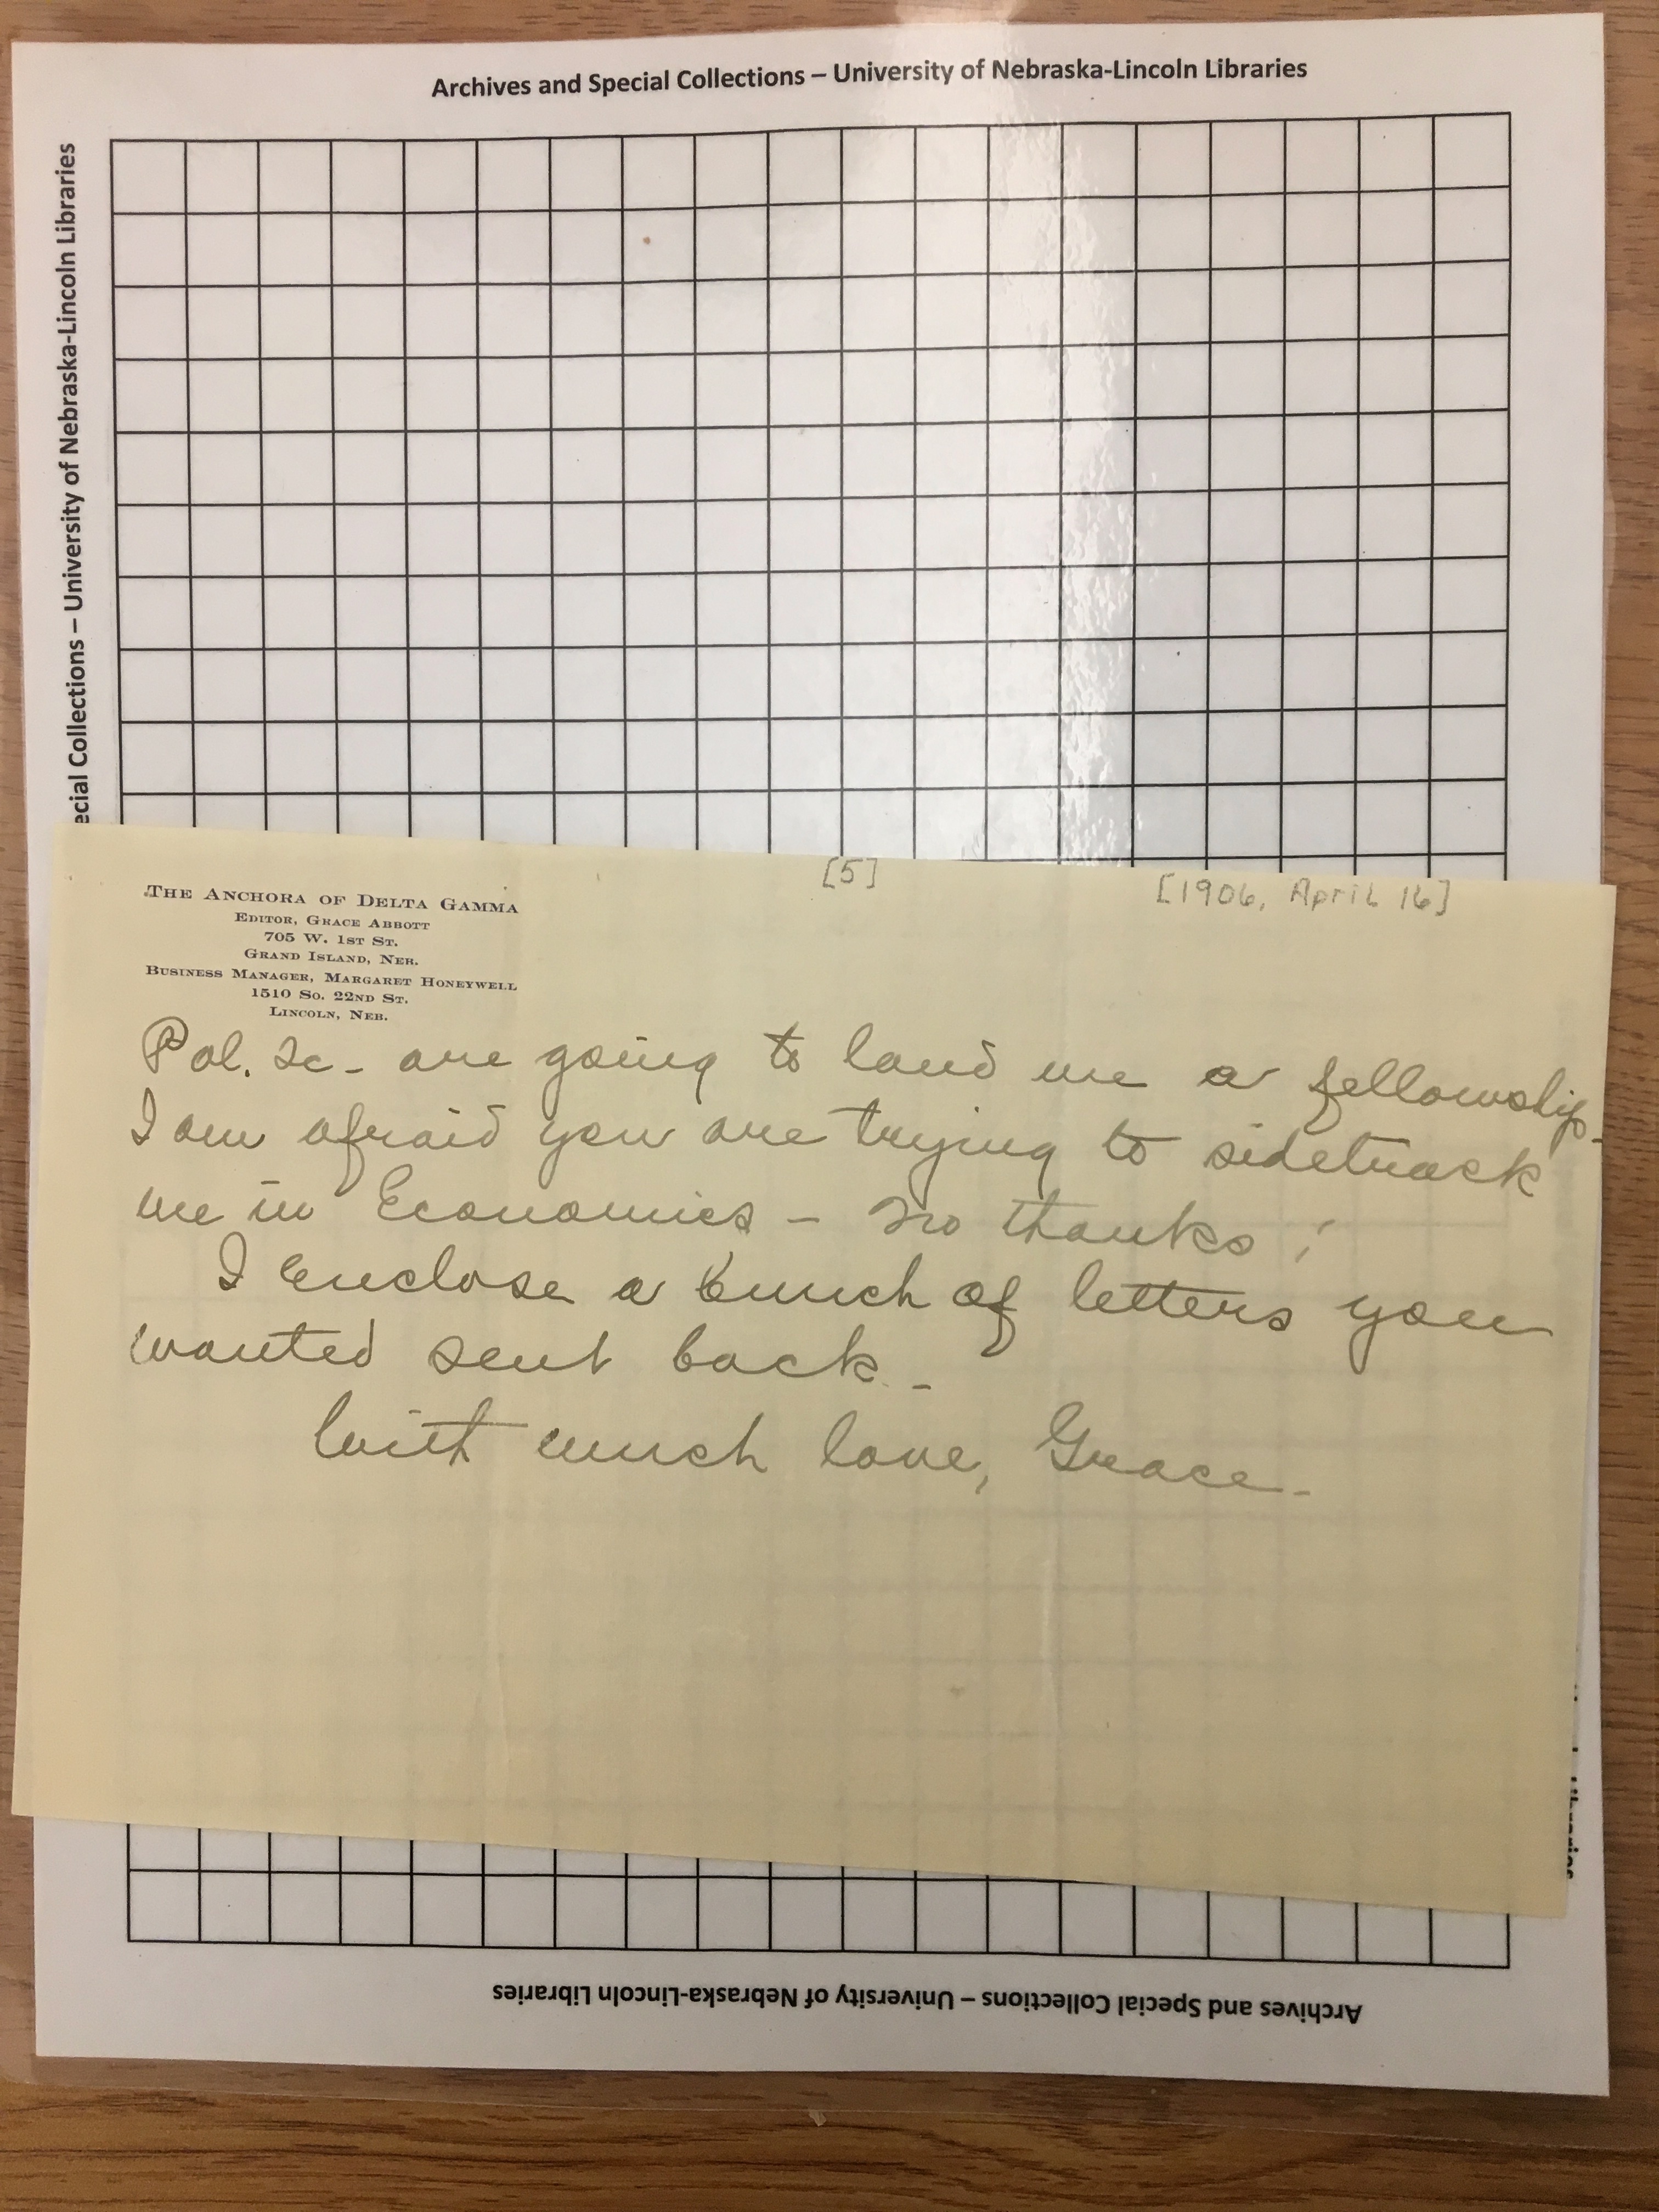 Archives and Special Collections – University of Nebraska-Lincoln Libraries
ecial Collections – University of Nebraska-Lincoln Libraries
[5]
[1906, April 16]
THE ANCHORA OF DELTA GAMMA
EDITOR, GRACE ABBOTT
705 W. 1ST ST.
GRAND ISLAND, NEB.
BUSINESS MANAGER, MARGARET HONEYWELL
1510 SO. 22ND ST.
LINCOLN, NEB.
Pol. Sc - are going to land me a fellowship -
I am afraid you are trying to sidetrack
me in Economics - No thanks!
I enclose a bunch of letters you
wanted sent back -
With much love, Grace -
Archives and Special Collections – University of Nebraska-Lincoln Libraries